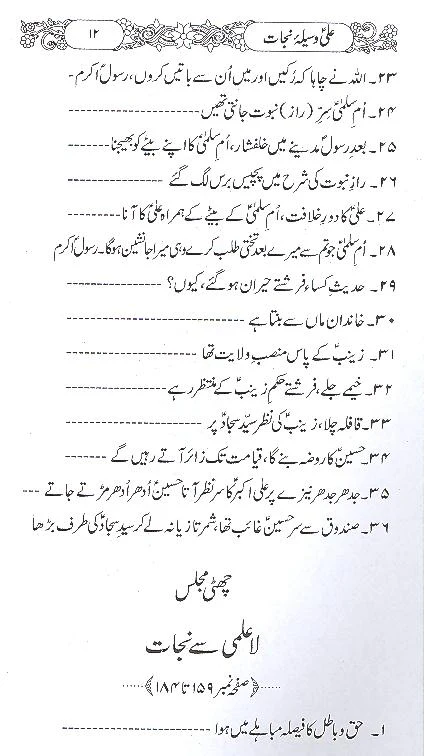 علیؑ وسیلۂ نجات ۱۲
۲۳۔ اللہ نے چاہا کہ رُکیں اور میں اُن سے باتیں کروں، رسولؐ اکرم -
۲۴۔ اُمِ سلمیٰؑ سِرّ (راز) نبوت جانتی تھیں ----------------
۲۵۔ بعدِ رسولؐ مدینے میں خلفشار، اُمِ سلمیٰؑ کا اپنے بیٹے کو بھیجنا --------
۲۶۔ رازِ نبوت کی شرح میں پچیس برس لگ گئے ---------------
۲۷۔ علیؑ کا دورِ خلافت، اُمِ سلمیٰؑ کے بیٹے کے ہمراہ علیؑ کا آنا ---------
۲۸۔ اُمِ سلمیٰؑ جو تم سے میرے بعد تختی طلب کرے وہی میرا جانشین ہوگا۔ رسولؐ اکرم
۲۹۔ حدیثِ کساء فرشتے حیران ہو گئے، کیوں؟ ---------------
۳۰۔ خاندان ماں سے بنتا ہے ----------------------
۳۱۔ زینبؑ کے پاس منصبِ ولایت تھا ------------------
۳۲۔ خیمے جلے، فرشتے حکمِ زینبؑ کے منتظر رہے --------------
۳۳۔ قافلہ چلا، زینبؑ کی نظر سیّد سجادؑ پر ----------------
۳۴۔ حسینؑ کا روضہ بنے گا، قیامت تک زائر آتے رہیں گے --------
۳۵۔ جدھر جدھر نیزے پر علی اکبرؑ کا سر نظر آتا حسینؑ اُدھر اُدھر مڑتے جاتے ---
۳۶۔ صندوق سے سرِ حسینؑ غائب تھا، شمر تازیانہ لے کر سیدِ سجادؑ کی طرف بڑھا
چھٹی مجلس
لاعلمی سے نجات
......﴿صفحہ نمبر ۱۵۹ تا ۱۸۴﴾......
۱۔ حق و باطل کا فیصلہ مباہلے میں ہوا -------------------